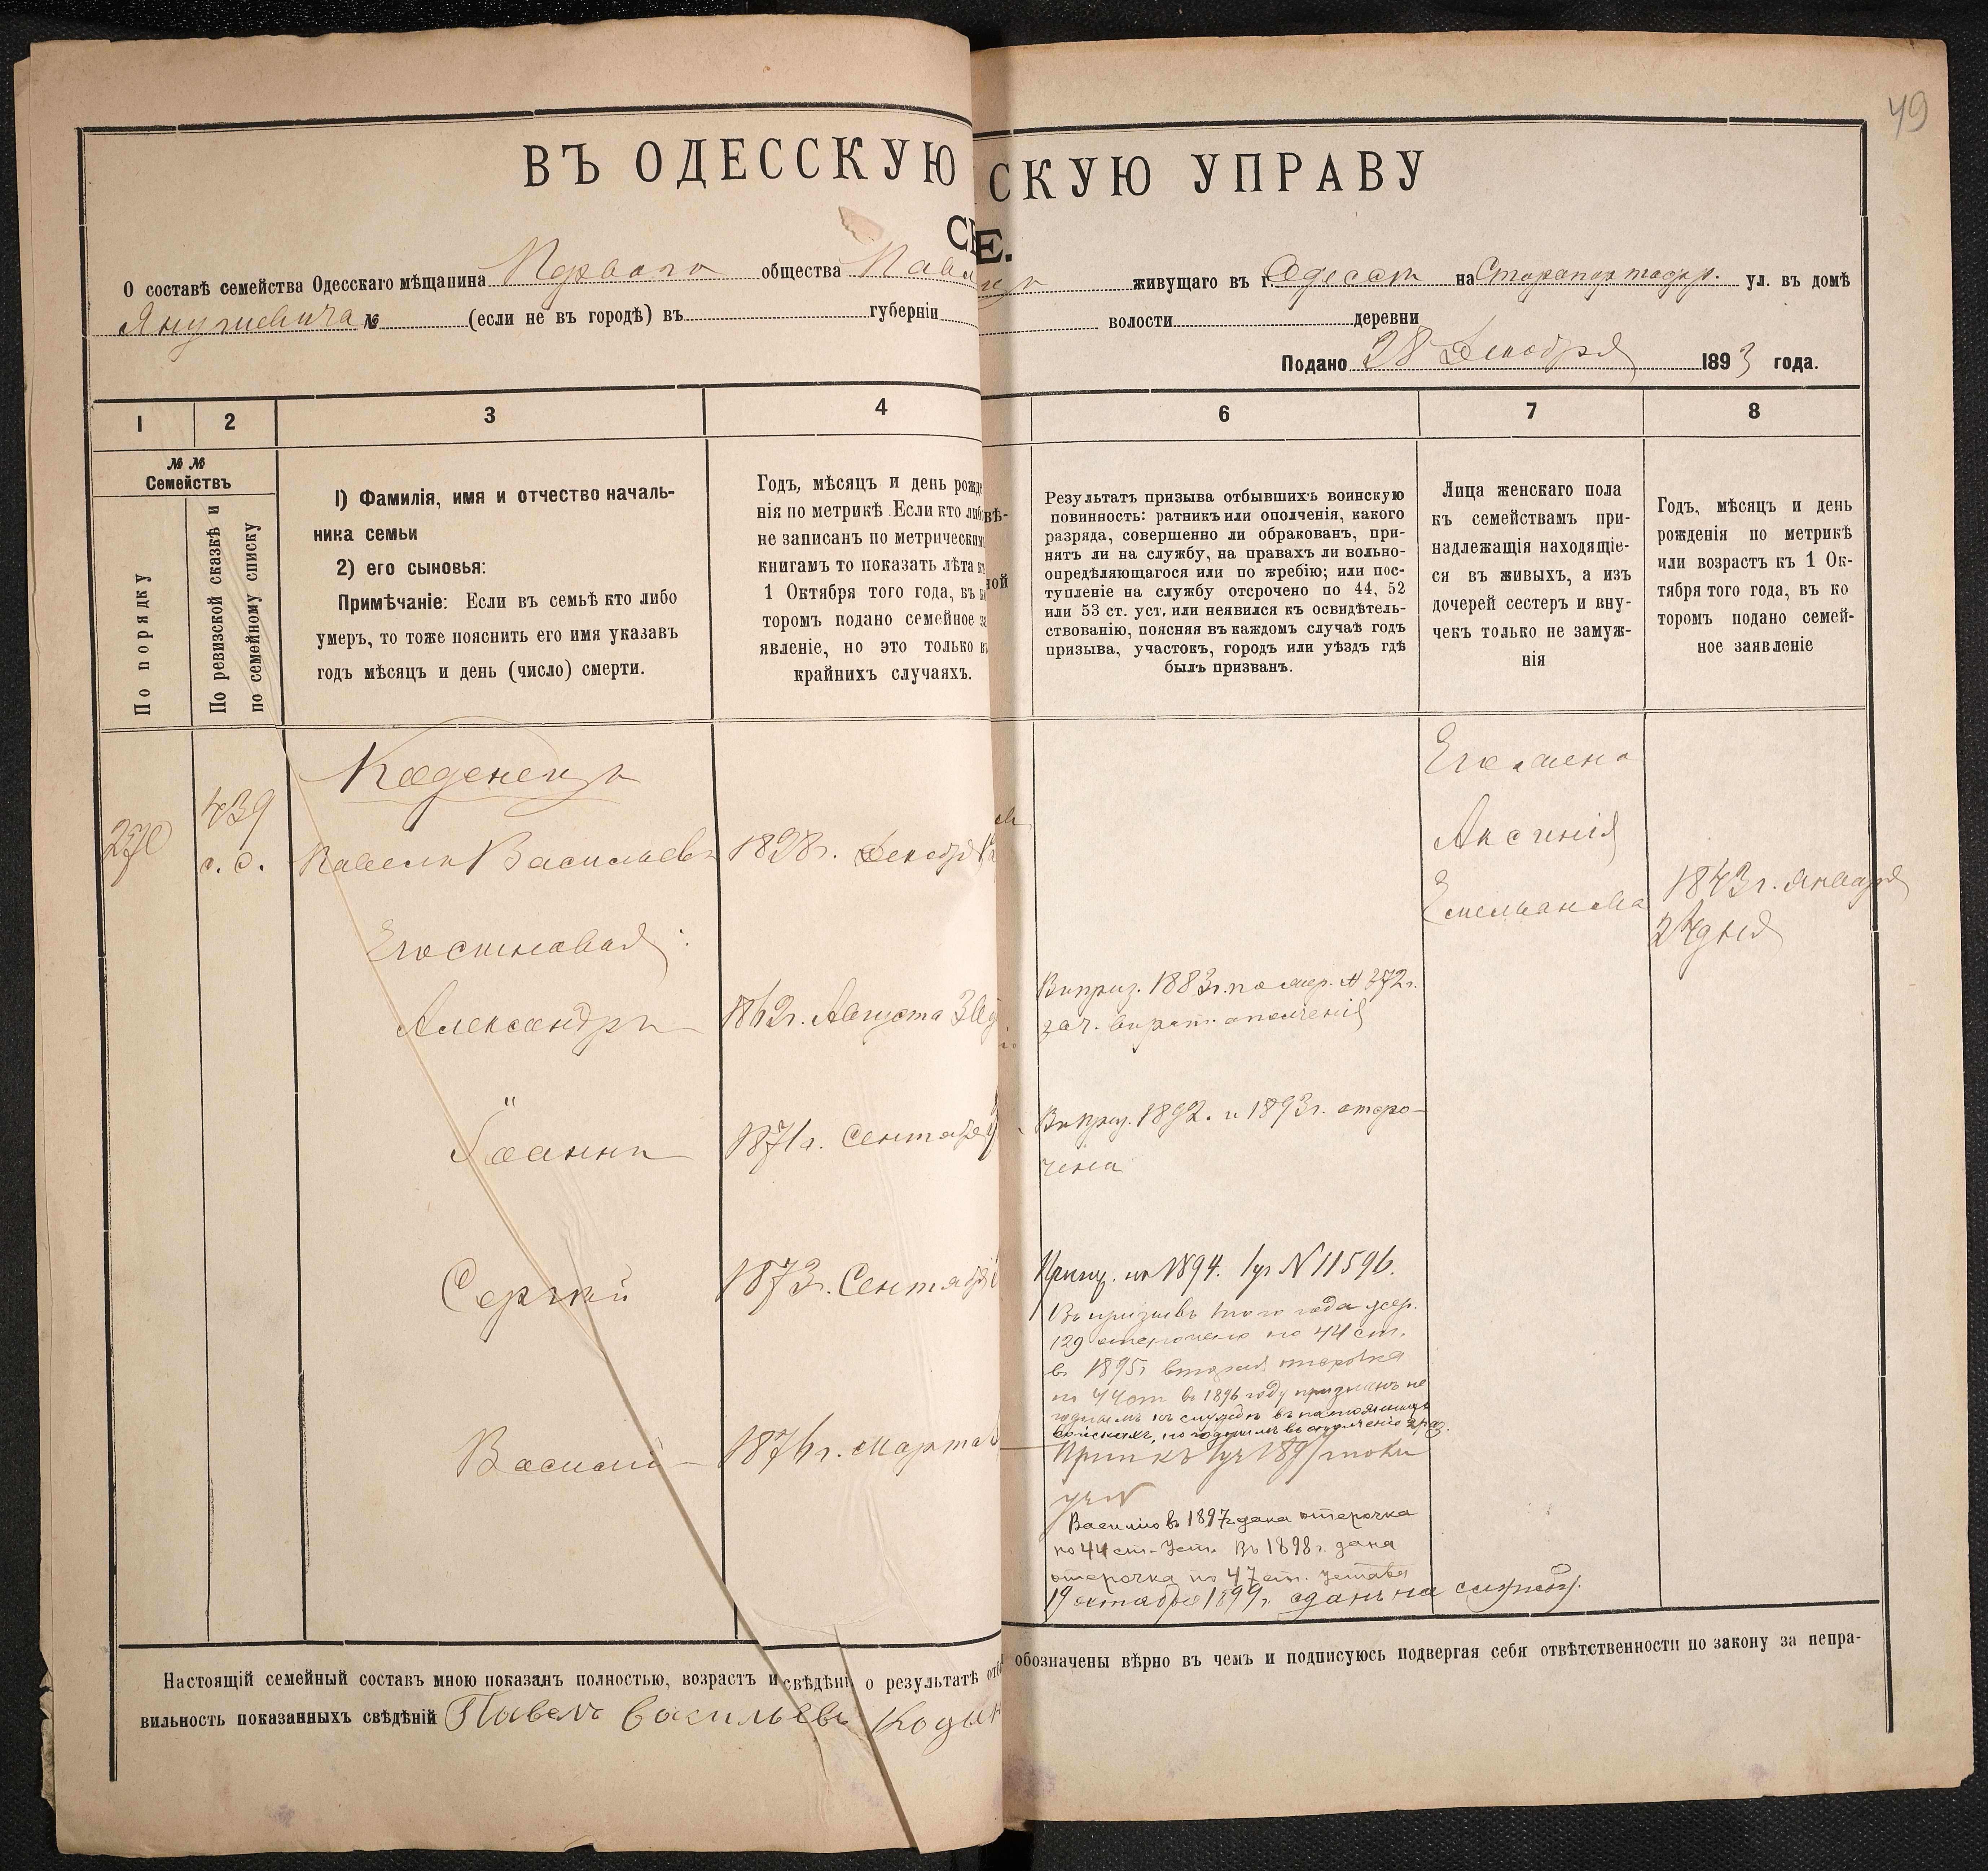 49
ВЪ ОДЕССКУЮ
СКУЮ УПРАВУ
Е.
О составѣ семейства Одесскаго мѣщанина Перваго общества Павла
живущаго въ г. Одессѣ на Старопортофр. ул. въ домѣ
Янушевича № (если не въ городѣ) въ губерніи
волости деревни
Подано 28 Декабря 1893 года.
1 2 3 4
6 7 8
№№
Семействъ
По порядку
По ревизской сказкѣ и
по семейному списку
1) Фамилія, имя и отчество началь-
ника семьи
2) его сыновья:
Примѣчаніе: Если въ семьѣ кто либо
умеръ, то тоже пояснить его имя указавъ
годъ мѣсяцъ и день (число) смерти.
Годъ, мѣсяцъ и день рожде
нія по метрикѣ. Если кто либо
не записанъ по метрическим
книгамъ то показать лѣта къ
1 Октября того года, въ ко
торомъ подано семейное за
явленіе, но это только въ
крайнихъ случаяхъ.
вѣ-
ной
Результатъ призыва отбывшихъ воинскую
повинность: ратникъ или ополченія, какого
разряда, совершенно ли обракованъ, при-
нятъ ли на службу, на правахъ ли вольно-
опредѣляющагося или по жребію; или пос-
тупленіе на службу отсрочено по 44, 52
или 53 ст. уст. или неявился къ освидѣтель-
ствованію, поясняя въ каждомъ случаѣ годъ
призыва, участокъ, городъ или уѣздъ гдѣ
былъ призванъ.
Лица женскаго пола
къ семействамъ при-
надлежащія находящіе-
ся въ живыхъ, а изъ
дочерей сестеръ и вну-
чекъ только не замуж-
нія
Годъ, мѣсяцъ и день
рожденія по метрикѣ
или возрастъ къ 1 Ок-
тября того года, въ ко
торомъ подано семей-
ное заявленіе
439
Павелъ Васильевъ 1838г. Декабря
Его сыновья:
Александръ 1862г. Августа 30
Іоаннъ 1871г. Сентября
Сергѣй 1873г. Сентября
Василій 1876г. Марта
Въ приз. 1883г. по жер. № 372г.
зач. въ рат. ополченія
Въ приз. 1892. и 1893г. отсро-
чена
1894. 1уч N 11596.
Въ призывъ того года жер.
129 отсрочено по 44 ст.
въ 1895г вторая отсрочка
по 44 ст въ 1896 году признанъ не
годнымъ къ службѣ въ постоянныхъ
войскахъ, но годнымъ въ ополченіе
Василію въ 1897г. дана отсрочка
по 44 ст. Уст. Въ 1898г. дана
отсрочка по 47 ст. устава
19 октября 1899г. сданъ на службу.
Его жена
Аксинія
Емельянова
1843г. Января
24 дня
Настоящій семейный составъ мною показанъ полностью, возрастъ и свѣдѣні о результатѣ отб
обозначены вѣрно въ чемъ и подписуюсь подвергая себя отвѣтственности по закону за непра-
вильность показанныхъ свѣдѣній Павелъ Васильевъ